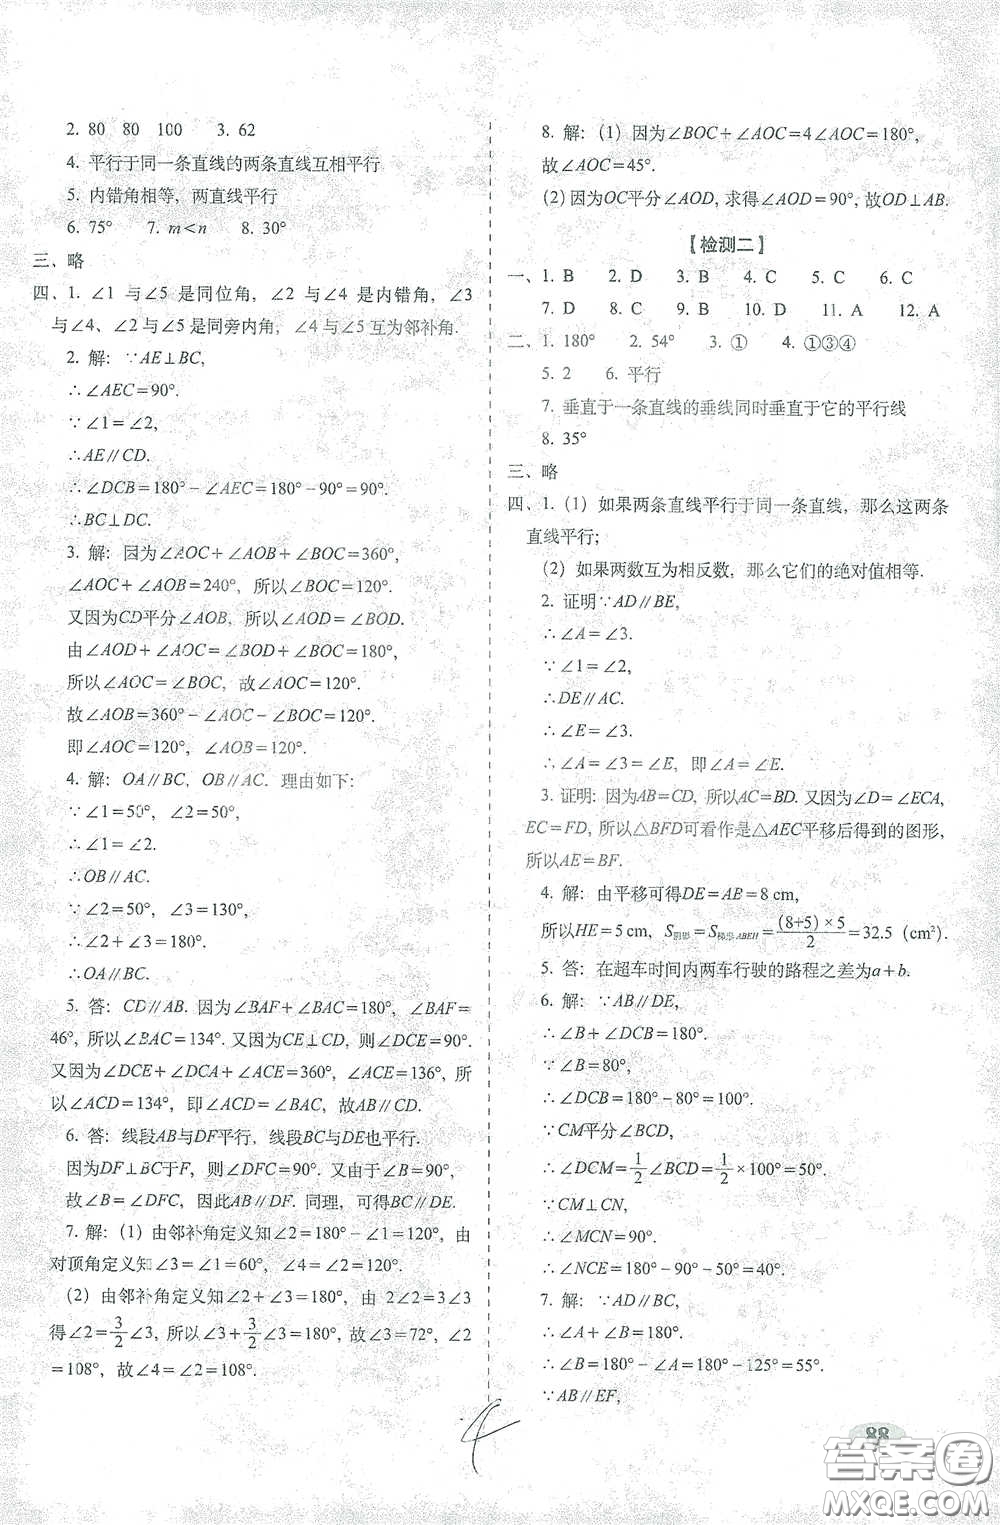 2. 80  80  100  3. 62
4. 平行于同一条直线的两条直线互相平行
5. 内错角相等，两直线平行
6. 75°  7. m＜n  8. 30°
三、略
四、1. ∠1 与∠5 是同位角，∠2 与∠4 是内错角，∠3
与∠4、∠2 与∠5 是同旁内角，∠4 与∠5 互为邻补角.
2. 解：∵AE⊥BC，
∴∠AEC＝90°.
∵∠1＝∠2，
∴AE∥CD.
∴∠DCB＝180°－∠AEC＝180°－90°＝90°.
∴BC⊥DC.
3. 解：因为∠AOC＋∠AOB＋∠BOC＝360°，
∠AOC＋∠AOB＝240°，所以∠BOC＝120°.
又因为CD平分∠AOB，所以∠AOD＝∠BOD.
由∠AOD＋∠AOC＝∠BOD＋∠BOC＝180°，
所以∠AOC＝∠BOC，故∠AOC＝120°.
故∠AOB＝360°－∠AOC－∠BOC＝120°.
即∠AOC＝120°，∠AOB＝120°.
4. 解：OA∥BC，OB∥AC. 理由如下：
∵∠1＝50°，∠2＝50°，
∴∠1＝∠2.
∴OB∥AC.
∵∠2＝50°，∠3＝130°，
∴∠2＋∠3＝180°.
∴OA∥BC.
5. 答：CD∥AB. 因为∠BAF＋∠BAC＝180°，∠BAF＝
46°，所以∠BAC＝134°. 又因为CE⊥CD，则∠DCE＝90°.
又因为∠DCE＋∠DCA＋∠ACE＝360°，∠ACE＝136°，所
以∠ACD＝134°，即∠ACD＝∠BAC，故AB∥CD.
6. 答：线段AB与DF平行，线段BC与DE也平行.
因为DF⊥BC于F，则∠DFC＝90°. 又由于∠B＝90°，
故∠B＝∠DFC，因此AB∥DF. 同理，可得BC∥DE.
7. 解：(1) 由邻补角定义知∠2＝180°－∠1＝120°，由
对顶角定义知∠3＝∠1＝60°，∠4＝∠2＝120°.
(2) 由邻补角定义知∠2＋∠3＝180°，由 2∠2＝3∠3
得∠2＝3/2∠3，所以∠3＋3/2∠3＝180°，故∠3＝72°，∠2
＝108°，故∠4＝∠2＝108°.
8. 解：(1) 因为∠BOC＋∠AOC＝4∠AOC＝180°，
故∠AOC＝45°.
(2) 因为OC平分∠AOD，求得∠AOD＝90°，故OD⊥AB.
【检测二】
一、1. B  2. D  3. B  4. C  5. C  6. C
7. D  8. C  9. B  10. D  11. A  12. A
二、1. 180°  2. 54°  3. ①  4. ①③④
5. 2  6. 平行
7. 垂直于一条直线的垂线同时垂直于它的平行线
8. 35°
三、略
四、1. (1) 如果两条直线平行于同一条直线，那么这两条
直线平行；
(2) 如果两数互为相反数，那么它们的绝对值相等.
2. 证明∵AD∥BE，
∴∠A＝∠3.
∵∠1＝∠2，
∴DE∥AC.
∴∠E＝∠3.
∴∠A＝∠3＝∠E，即∠A＝∠E.
3. 证明：因为AB＝CD，所以AC＝BD. 又因为∠D＝∠ECA，
EC＝FD，所以△BFD可看作是△AEC平移后得到的图形，
所以AE＝BF.
4. 解：由平移可得DE＝AB＝8 cm，
所以HE＝5 cm，S阴影＝S梯形ABEH＝(8+5)×5/2＝32.5 (cm²).
5. 答：在超车时间内两车行驶的路程之差为a＋b.
6. 解：∵AB∥DE，
∴∠B＋∠DCB＝180°.
∵∠B＝80°，
∴∠DCB＝180°－80°＝100°.
∵CM平分∠BCD，
∴∠DCM＝1/2∠BCD＝1/2×100°＝50°.
∵CM⊥CN，
∴∠MCN＝90°.
∴∠NCE＝180°－90°－50°＝40°.
7. 解：∵AD∥BC，
∴∠A＋∠B＝180°.
∴∠B＝180°－∠A＝180°－125°＝55°.
∵AB∥EF，
4
88
答案圈
MXQE.COM